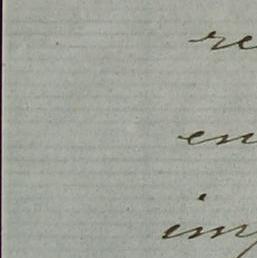 re
en
im